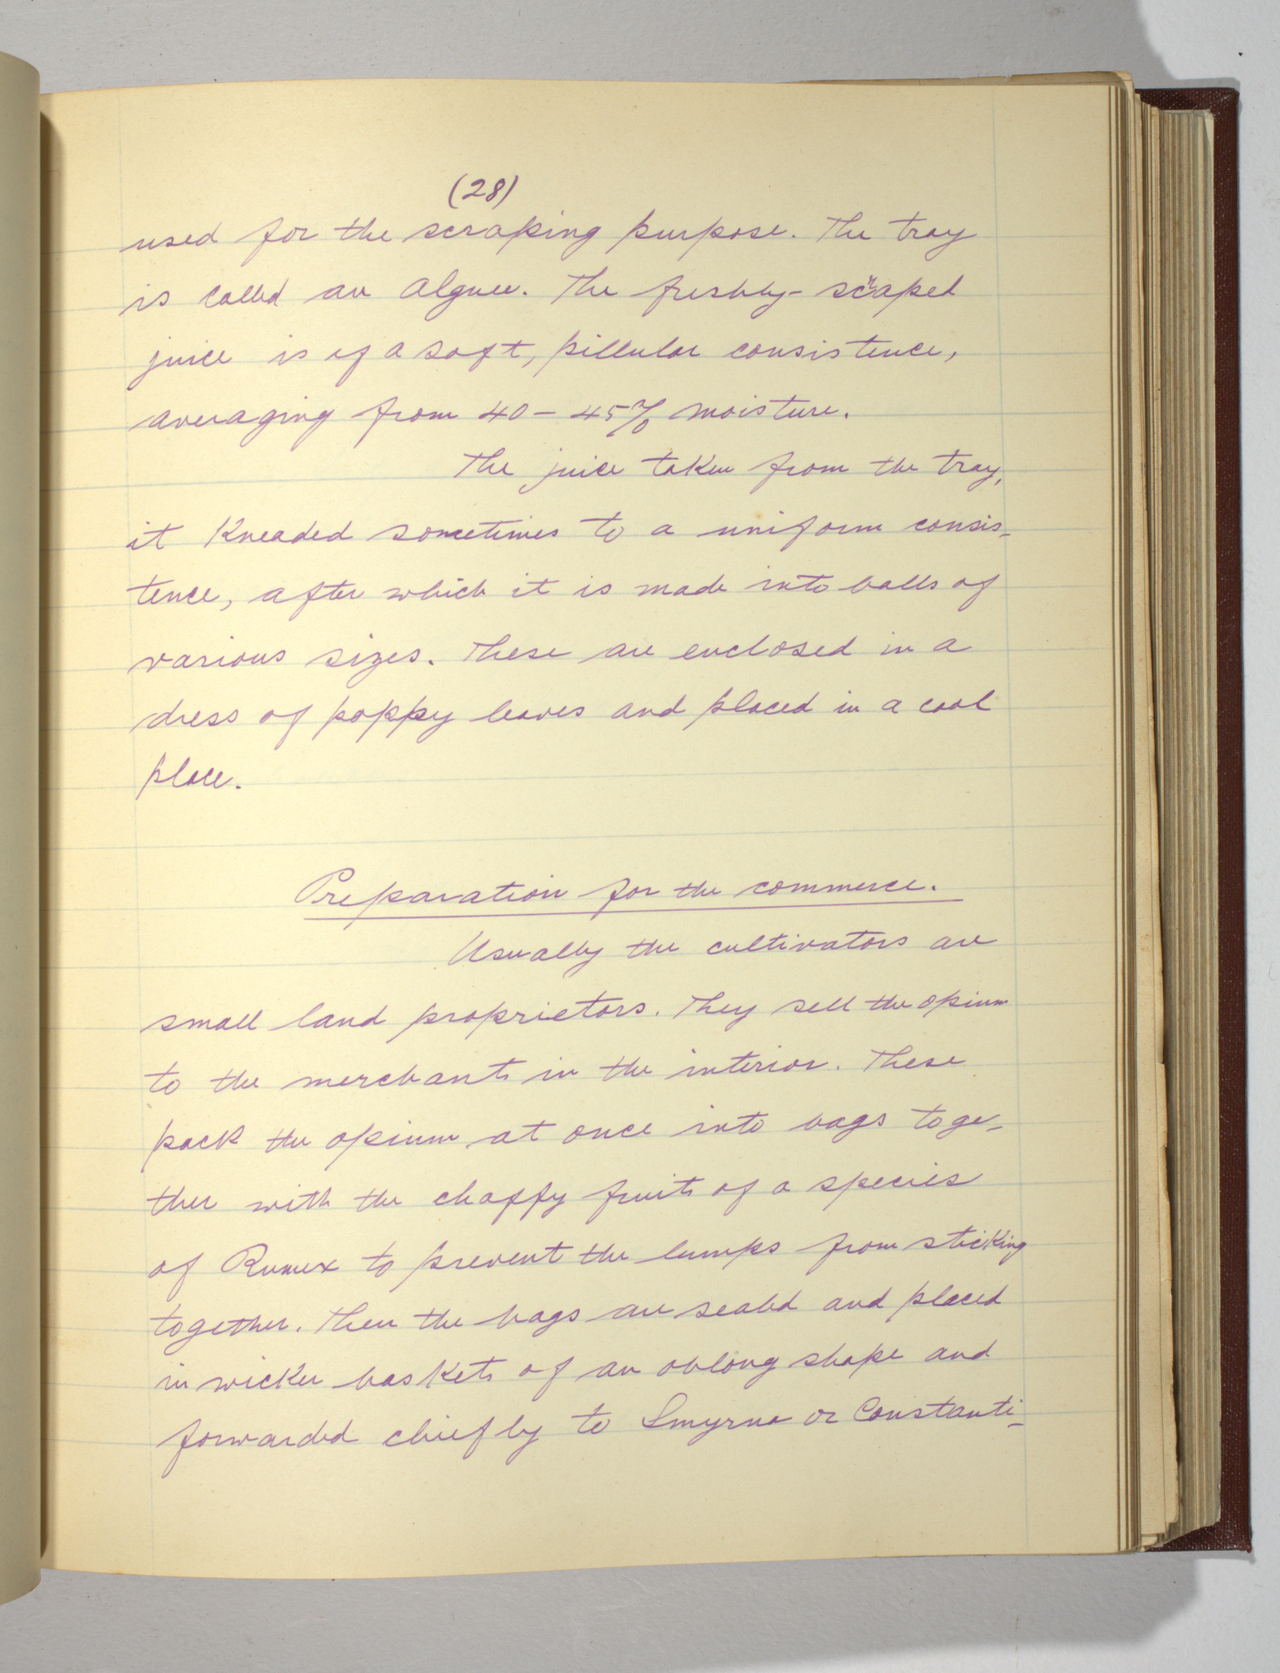 (28)
used for the scraping purpose. The tray
is called an Alguee. The freshly-scraped
juice is of a soft, pillular consistence,
averaging from 40-45% moisture.
The juice taken from the tray,
it kneaded sometimes to a uniform consis-
tence, after which it is made into balls of
various sizes. These are enclosed in a
dress of poppy leaves and placed in a cool
place.
Preparation for the commerce.
Usually the cultivators are
small land proprietors. They sell the opium
to the merchants in the interior. These
pack the opium at once into bags toge-
ther with the chaffy fruits of a species
of Rumex to prevent the lumps from sticking
together. Then the bags are sealed and placed
in wicker baskets of an oblong shape and
forwarded chiefly to Smyrna or Constanti-